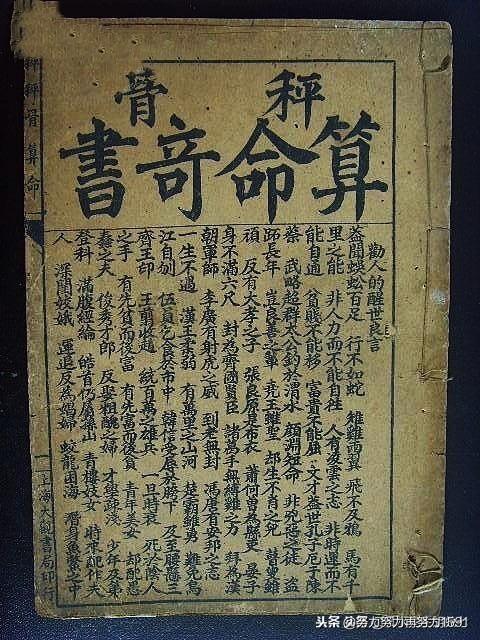 秤骨
算命竒書
勸人的醒世良言
蓋聞蜈蚣百足 行不如蛇 雄雞兩翼 飛不及鴉 馬有千
里之能 非人力而不能自往 人有凌雲之志 非時運而不
能自通 貧賤不能移 富貴不能屈 文才蓋世孔子厄于陳
蔡 武略超群太公釣於渭水 顏淵短命 非兇惡之徒 盜
跖長年 豈良善之輩 堯王雖聖 却生不肖之兒 瞽叟雖
頑 反有大孝之子 張良原是布衣 蕭何曾為縣吏 晏子
身不滿六尺 封為齊國賢臣 諸葛手無縛雞之力 拜為漢
朝軍師 李廣有射虎之威 到老無封 馮唐有安邦之志
一生不遇 漢王柔弱 有萬里之山河 楚霸雖勇 難免烏
江自刎 伍員乞食於市中 韓信受辱於胯下 及至腰懸三
齊王印 王翦收趙 統百萬之雄兵 一旦時衰 死於陰人
之手 有先貧而後富 有先富而後貧 青年美女 却配愚
蠢之夫 俊秀才郎 反娶粗醜之婦 才學疎淺 少年及第
登科 滿腹經綸 皓首仍屬孫山 青樓妓女 時來配作夫
人 深閨姣娥 運退反為娼婦 蛟龍困海 潛身魚鱉之中
秤骨算命
上海大觀書局印行